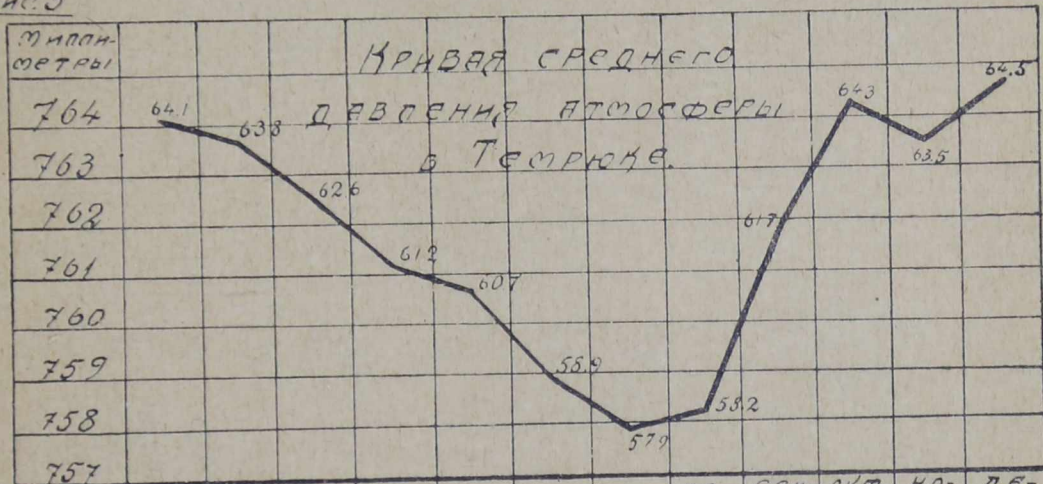 милли-
метры
Кривая среднего
давления атмосферы
в Темрюке.
764
763
762
761
760
759
758
757
64.1
63.8
62.6
61.2
60.7
58.9
57.9
58.2
61.7
64.3
63.5
64.5